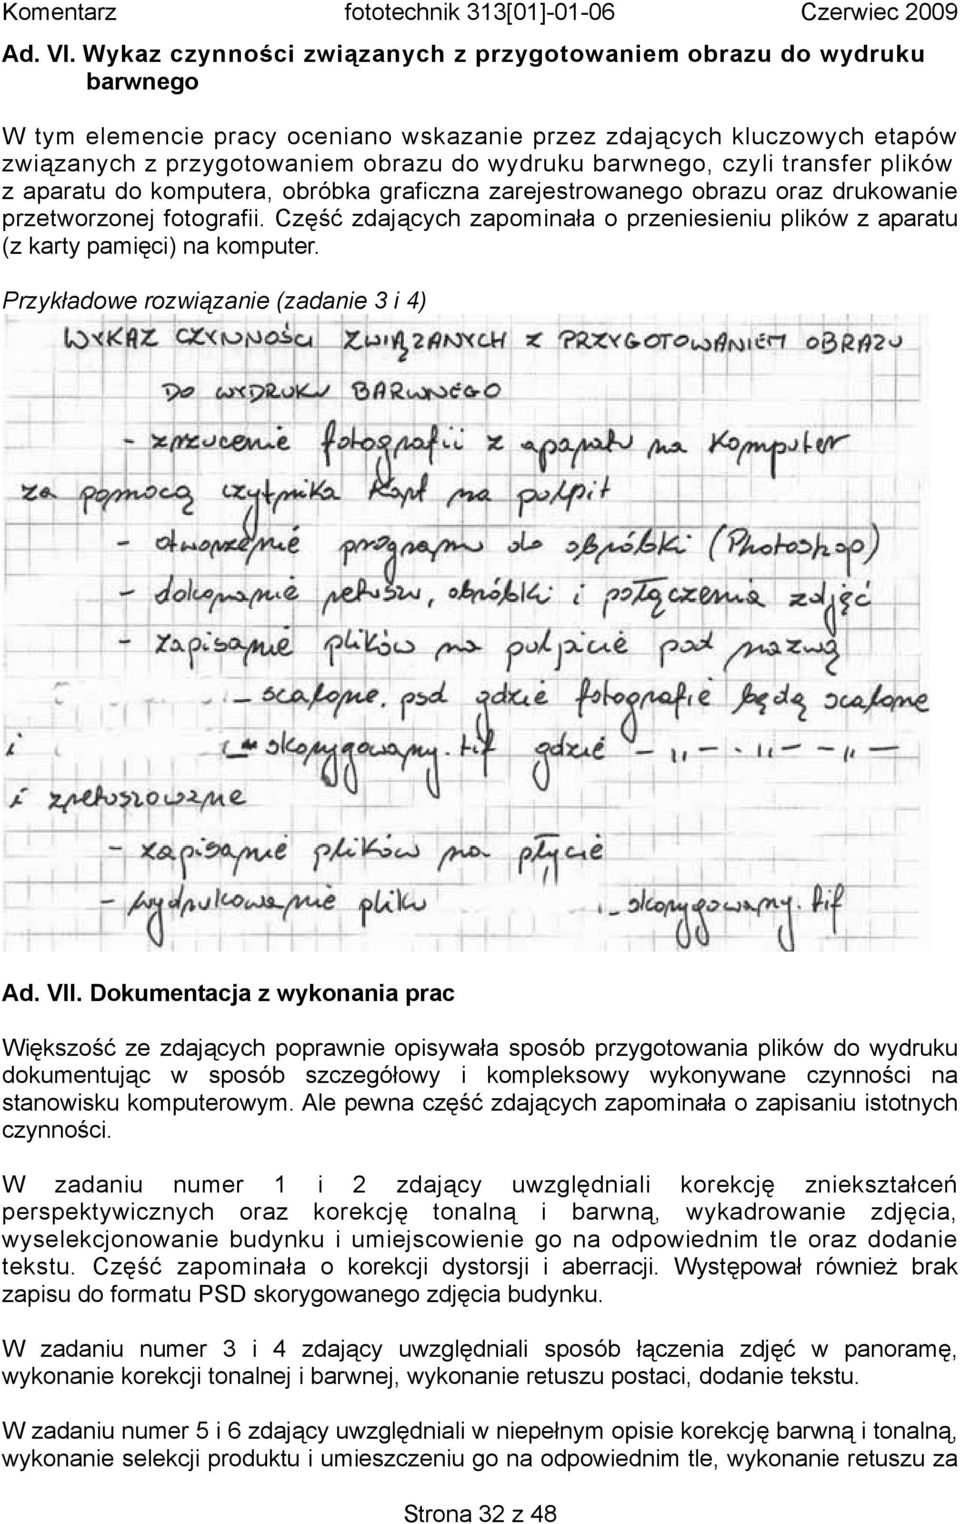 Komentarz fototechnik 313[01]-01-06 Czerwiec 2009
Ad. VI. Wykaz czynności związanych z przygotowaniem obrazu do wydruku
barwnego
W tym elemencie pracy oceniano wskazanie przez zdających kluczowych etapów
związanych z przygotowaniem obrazu do wydruku barwnego, czyli transfer plików
z aparatu do komputera, obróbka graficzna zarejestrowanego obrazu oraz drukowanie
przetworzonej fotografii. Część zdających zapominała o przeniesieniu plików z aparatu
(z karty pamięci) na komputer.
Przykładowe rozwiązanie (zadanie 3 i 4)
WYKAZ CZYNNOŚCI ZWIĄZANYCH Z PRZYGOTOWANIEM OBRAZU
DO WYDRUKU BARWNEGO
- zrzucenie fotografii z aparatu na komputer
za pomocą czytnika kart na pulpit
- otworzenie programu do obróbki (Photoshop)
- dokonanie retuszu, obróbki i połączenia zdjęć
- zapisanie plików na pulpicie pod nazwą
_scalone.psd gdzie fotografie będą scalone
i _skorygowany.tif gdzie - ,, - . ,, - - ,, -
i zretuszowane
- zapisanie plików na płycie
- wydrukowanie pliku _skorygowany.tif
Ad. VII. Dokumentacja z wykonania prac
Większość ze zdających poprawnie opisywała sposób przygotowania plików do wydruku
dokumentując w sposób szczegółowy i kompleksowy wykonywane czynności na
stanowisku komputerowym. Ale pewna część zdających zapominała o zapisaniu istotnych
czynności.
W zadaniu numer 1 i 2 zdający uwzględniali korekcję zniekształceń
perspektywicznych oraz korekcję tonalną i barwną, wykadrowanie zdjęcia,
wyselekcjonowanie budynku i umiejscowienie go na odpowiednim tle oraz dodanie
tekstu. Część zapominała o korekcji dystorsji i aberracji. Występował również brak
zapisu do formatu PSD skorygowanego zdjęcia budynku.
W zadaniu numer 3 i 4 zdający uwzględniali sposób łączenia zdjęć w panoramę,
wykonanie korekcji tonalnej i barwnej, wykonanie retuszu postaci, dodanie tekstu.
W zadaniu numer 5 i 6 zdający uwzględniali w niepełnym opisie korekcję barwną i tonalną,
wykonanie selekcji produktu i umieszczeniu go na odpowiednim tle, wykonanie retuszu za
Strona 32 z 48